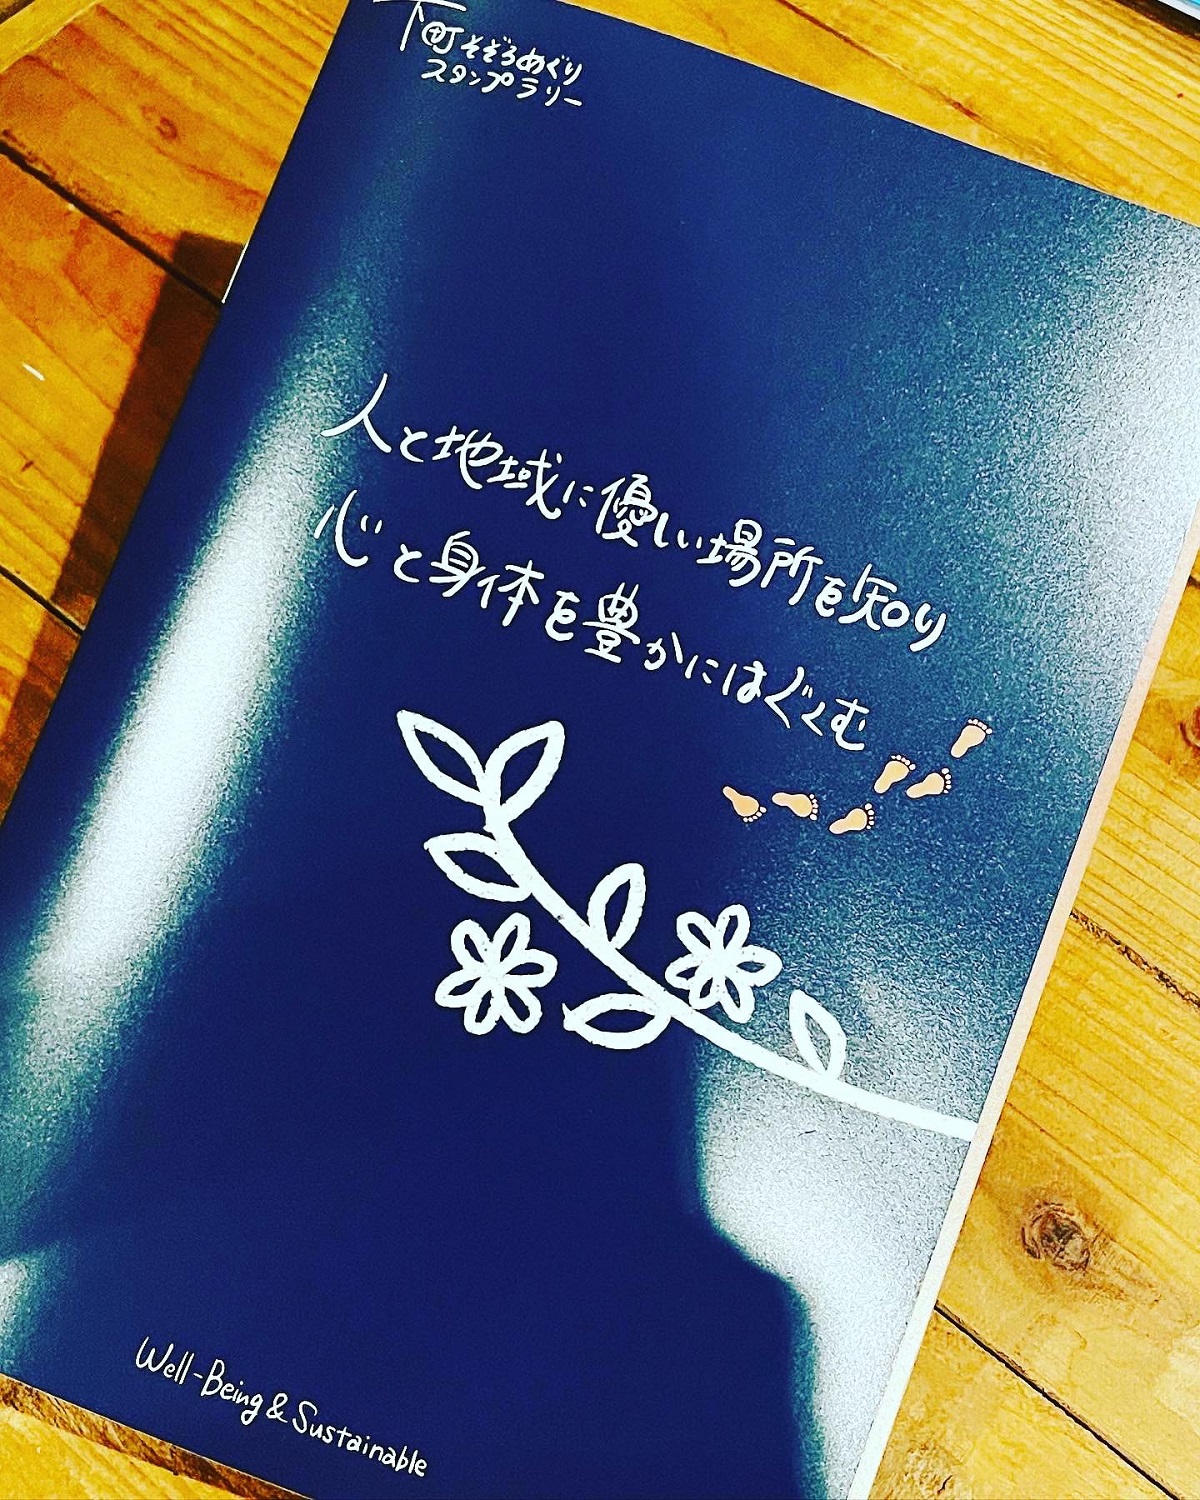 下町そぞろめぐり
スタンプラリー
人と地域に優しい場所を知り
心と身体を豊かにはぐくむ
Well-Being & Sustainable